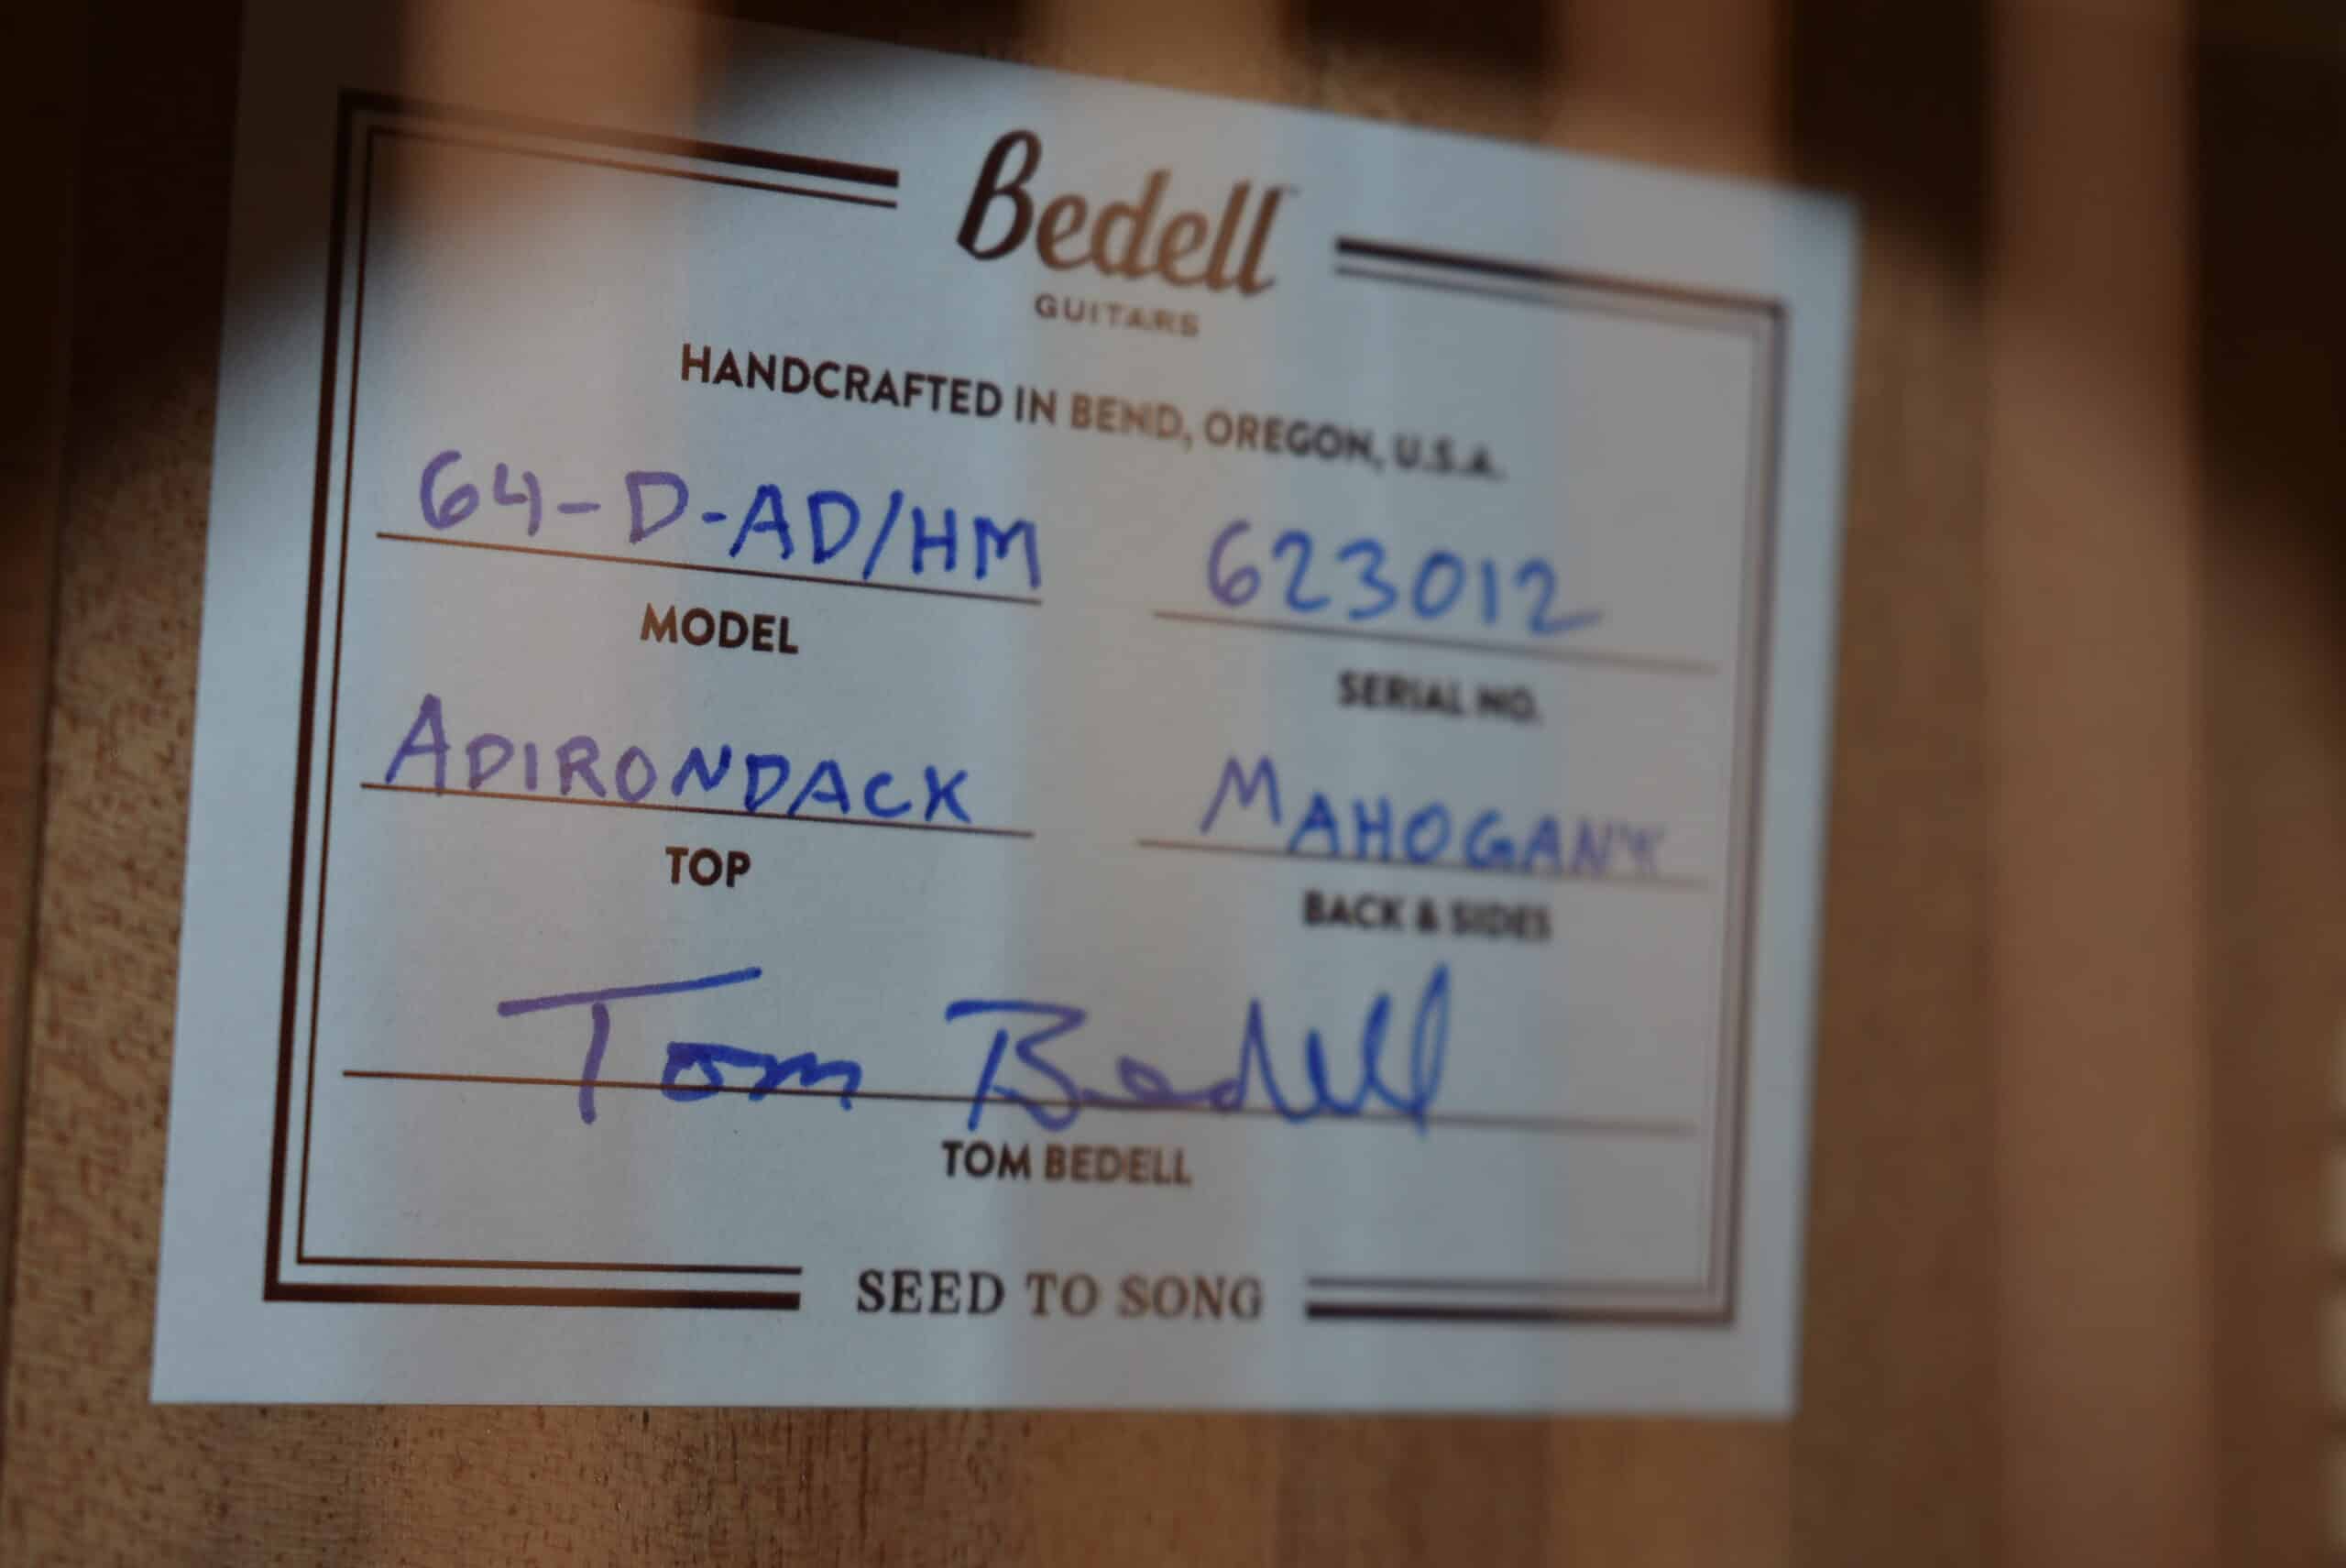 Bedell
GUITARS
HANDCRAFTED IN BEND, OREGON, U.S.A.
64-D-AD/HM 623012
MODEL SERIAL NO.
ADIRONDACK MAHOGANY
TOP BACK & SIDES
Tom Bedell
TOM BEDELL
SEED TO SONG